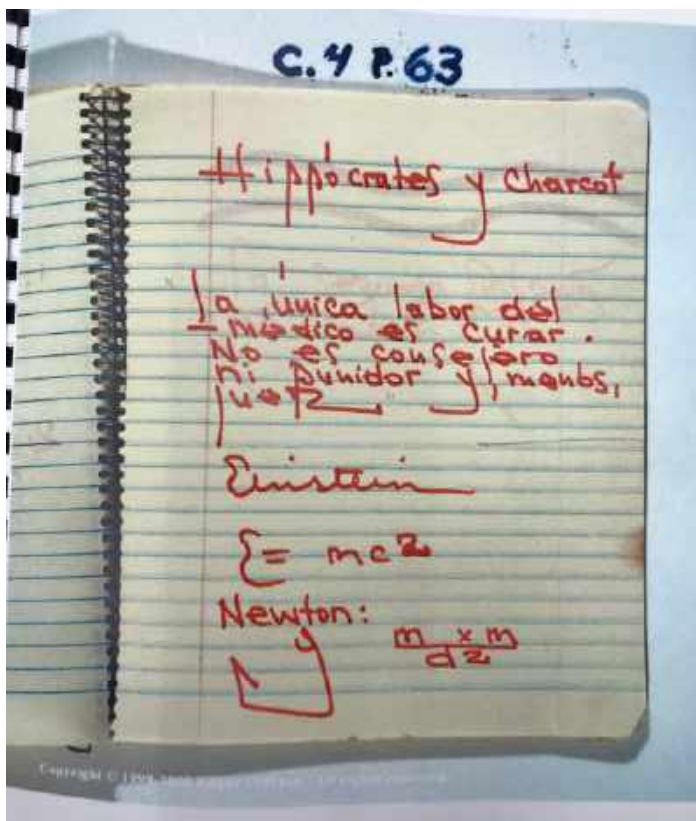 C. 4 P. 63
Hippócrates y Charcot
La única labor del
médico es curar.
No es consejero
ni punidor y, menos,
juez
Einstein
E = mc2
Newton:
m x m
d2